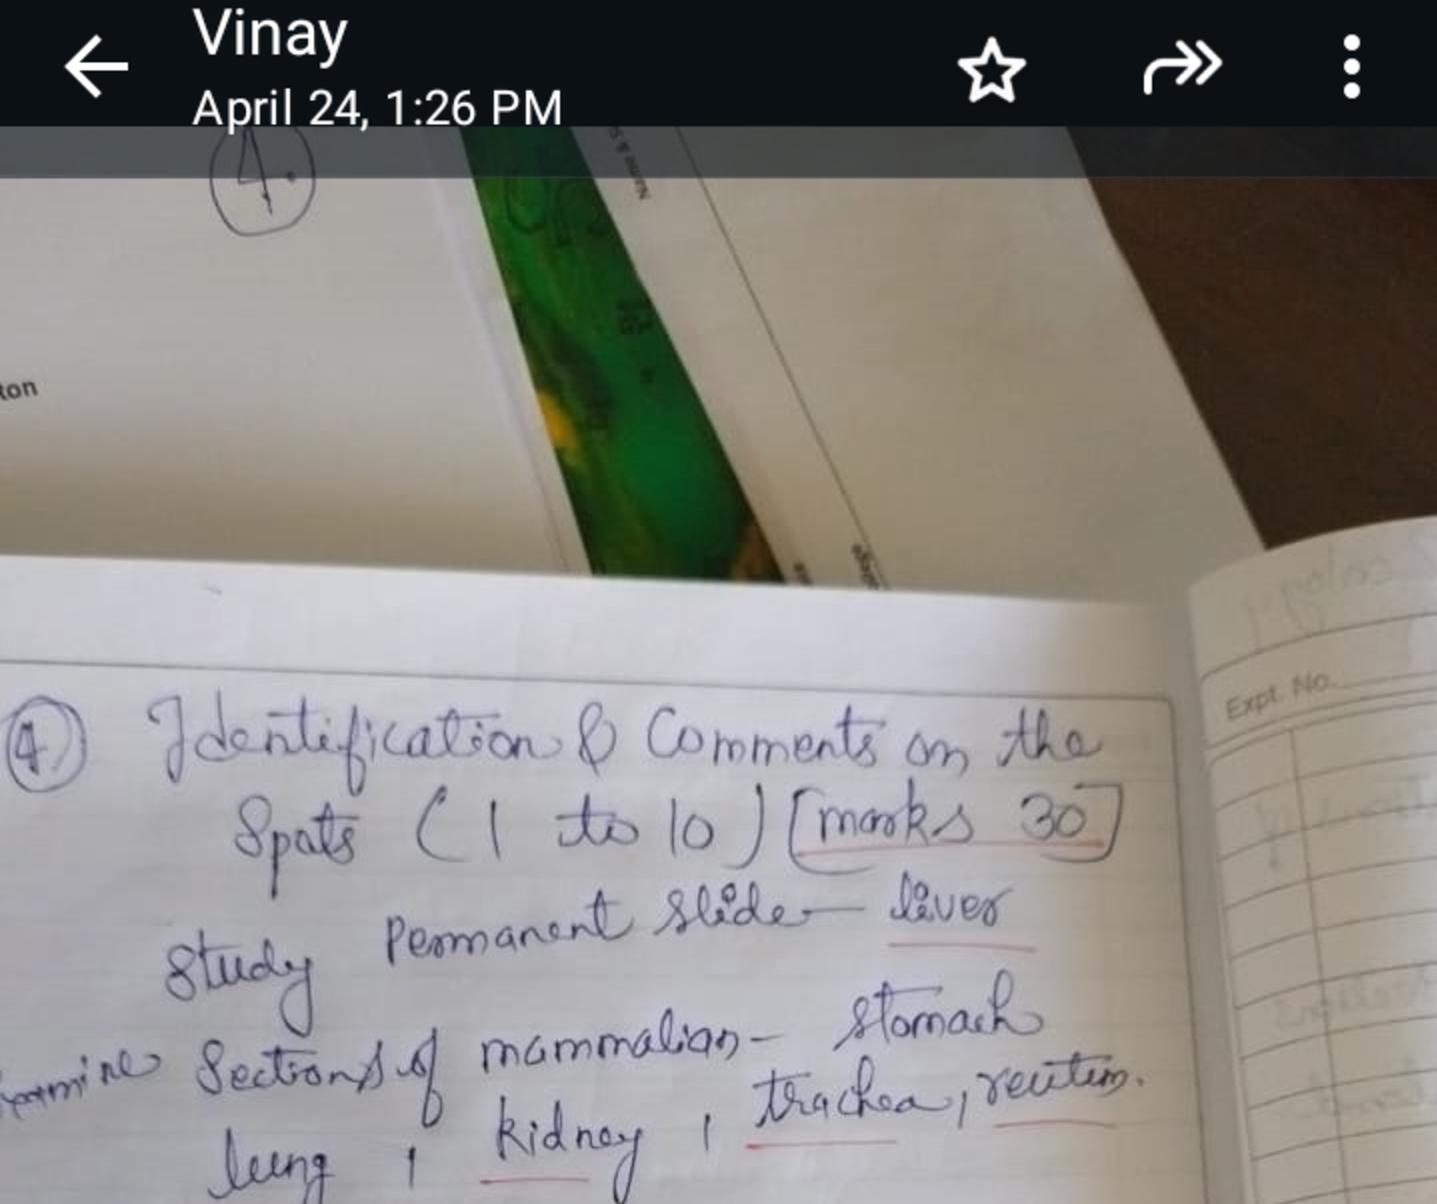 Vinay
April 24, 1:26 PM
4.
Name & S
ton
4) Identification & Comments on the
Spots (1 to 10) [marks 30]
Study Permanent slide — liver
Sections of mammalian - stomach
lung, kidney, trachea,
Expt. No.